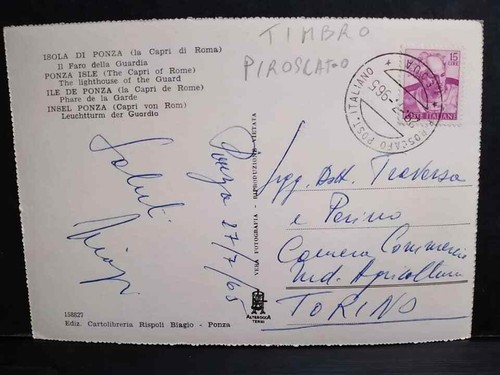 TIMBRO
PIROSCAFO
ISOLA DI PONZA (la Capri di Roma)
Il Faro della Guardia
PONZA ISLE (The Capri of Rome)
The lighthouse of the Guard
ILE DE PONZA (la Capri de Rome)
Phare de la Garde
INSEL PONZA (Capri von Rom)
Leuchtturm der Guardia
15
LIRE
POSTE ITALIANE
PIROSCAFO POST. ITALIANO
Saluti
Ponza 27/7/65
VERA FOTOGRAFIA - RIPRODUZIONE VIETATA
Ing. Dott. Traversa
e Perino
Camera Commercio
Ind. Agricoltura
TORINO
ALTEROCCA
TERNI
158827
Ediz. Cartolibreria Rispoli Biagio - Ponza